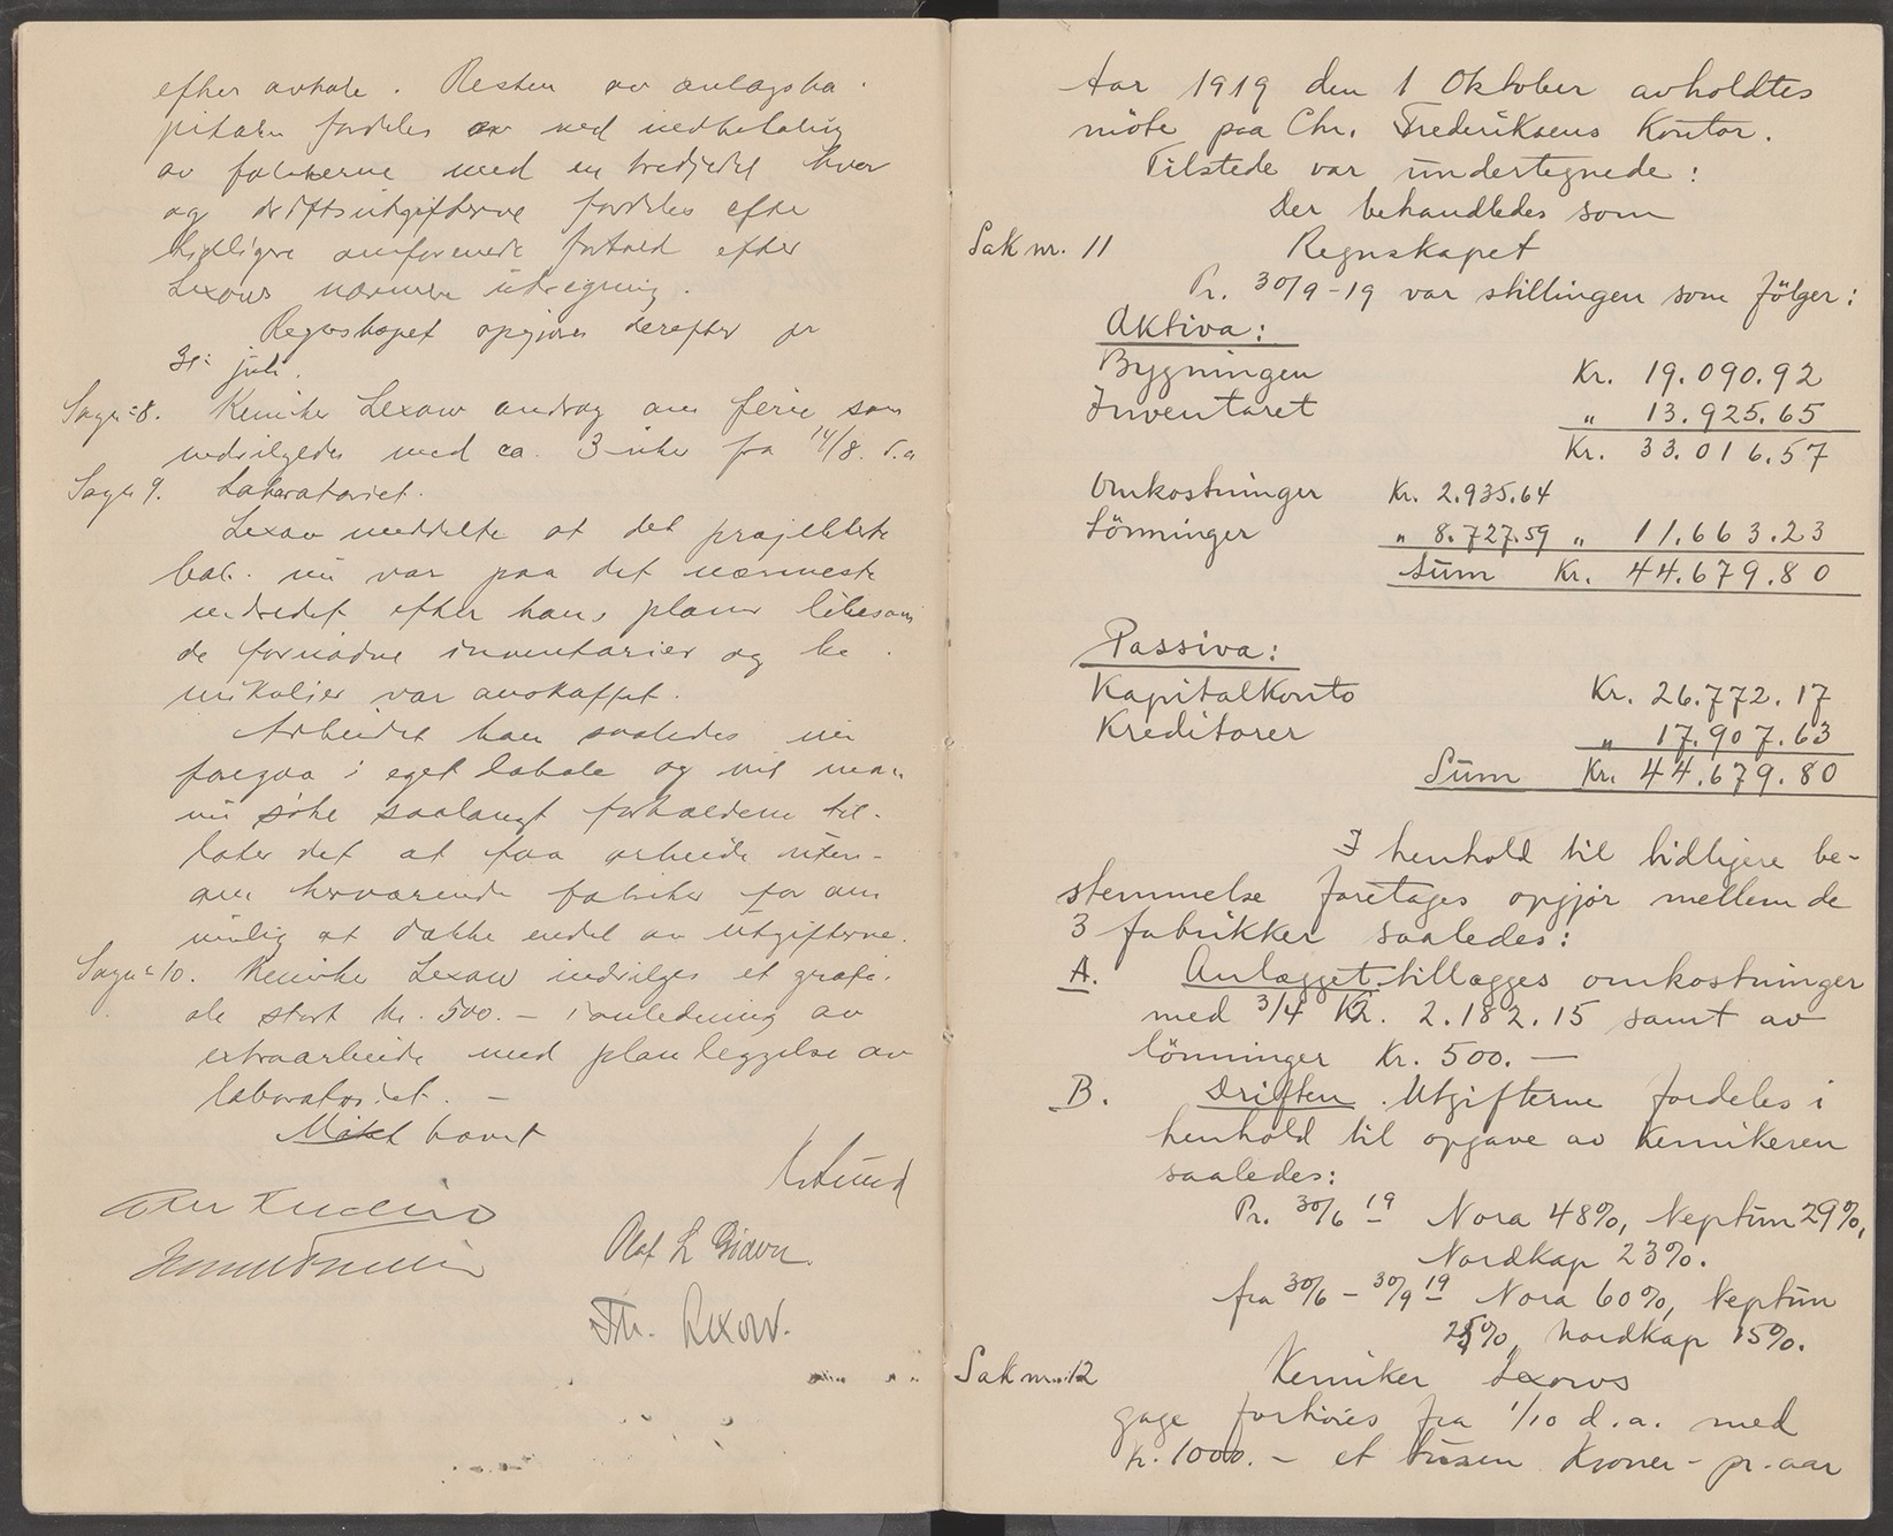 efter avtale. Resten av anlagska-
pitalen fordeles av med nedbetaling
av fabikerne med en tredjedel hver
og driftsutgifterne fordeles efter
tidligere omforenede forhold efter
Lexows nærmere utregning.
Regnskapet opgjøres derefter pr
31: juli.
Sag nr 8. Kemiker Lexow androg om ferie som
indvilgedes med ca. 3 uker fra 14/8. d.a
Sag nr 9. Laboratoriet.
Lexow meddelte at det projekterte
lab. nu var paa det nærmeste
indredet efter hans planer likesom
de fornødne inventarier og ke-
mikalier var anskaffet.
Arbeidet kan saaledes nu
foregaa i eget lokale og vil man
nu søke saalangt forholdene til-
later det at faa arbeide uten-
om herværende fabriker for om
mulig at dække endel av utgifterne.
Sag nr 10. Kemiker Lexow indvilges et grati-
ale stort kr. 500.- i anledning av
extraarbeide med planleggelse av
laboratoriet. -
Møtet hævet
Olaf L Bidøen.
Th. Lexow.
Aar 1919 den 1 Oktober avholdtes
möte paa Chr. Frederiksens Kontor.
Tilstede var undertegnede:
Der behandledes som
Sak nr. 11 Regnskapet
Pr. 30/9-19 var stillingen som følger:
Aktiva:
Bygningen Kr. 19.090.92
Inventaret " 13.925.65
Kr. 33.016.57
Omkostninger Kr. 2.935.64
Lönninger " 8.727.59 " 11.663.23
Sum Kr. 44.679.80
Passiva:
Kapitalkonto Kr. 26.772.17
Kreditorer " 17.907.63
Sum Kr. 44.679.80
I henhold til tidligere be-
stemmelse foretages opgjør mellem de
3 fabrikker saaledes:
A. Anlægget tillægges omkostninger
med 3/4 Kr. 2.182.15 samt av
lönninger Kr. 500.—
B. Driften. Utgifterne fordeles i
henhold til opgave av Kemikeren
saaledes:
Pr. 30/6 19 Nora 48%, Neptun 29%,
Nordkap 23%.
fra 30/6 - 30/9 19 Nora 60%, Neptun
25%, Nordkap 15%.
Sak nr. 12 Kemiker Lexows
gage forhöies fra 1/10 d.a. med
Kr. 1000.- et tusen Kroner - pr. aar